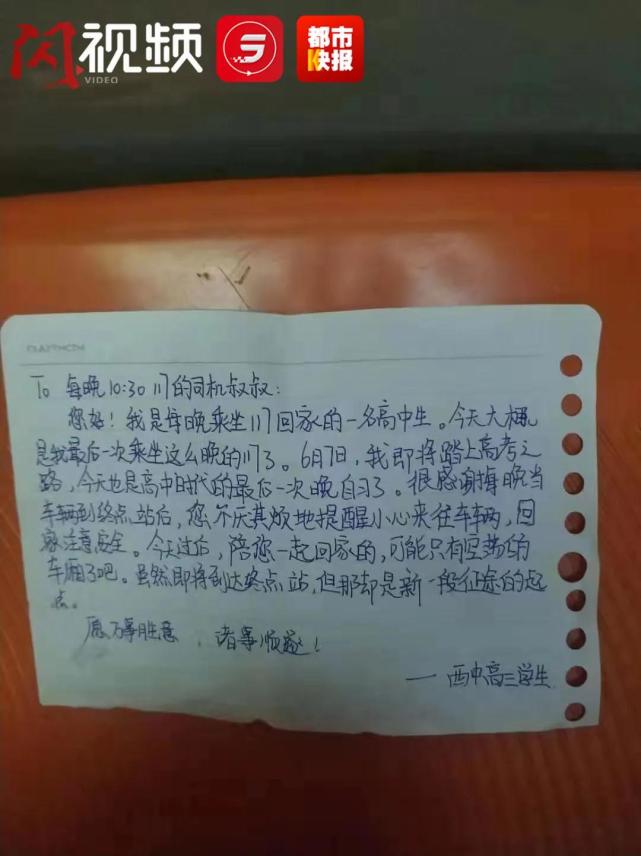 闪视频
VIDEO
都市
快报
To 每晚10:30 111的司机叔叔:
您好!我是每晚乘坐111回家的一名高中生。今天大概
是我最后一次乘坐这么晚的111了。6月7日,我即将踏上高考之
路,今天也是高中时代的最后一次晚自习了。很感谢每晚当
车辆到终点站后,您不厌其烦地提醒小心来往车辆,回
家注意安全。今天过后,陪您一起回家的,可能只有空荡的
车厢了吧。虽然即将到达终点站,但那却是新一段征途的起
点。
愿万事胜意,诸事顺遂!
——西中高三学生